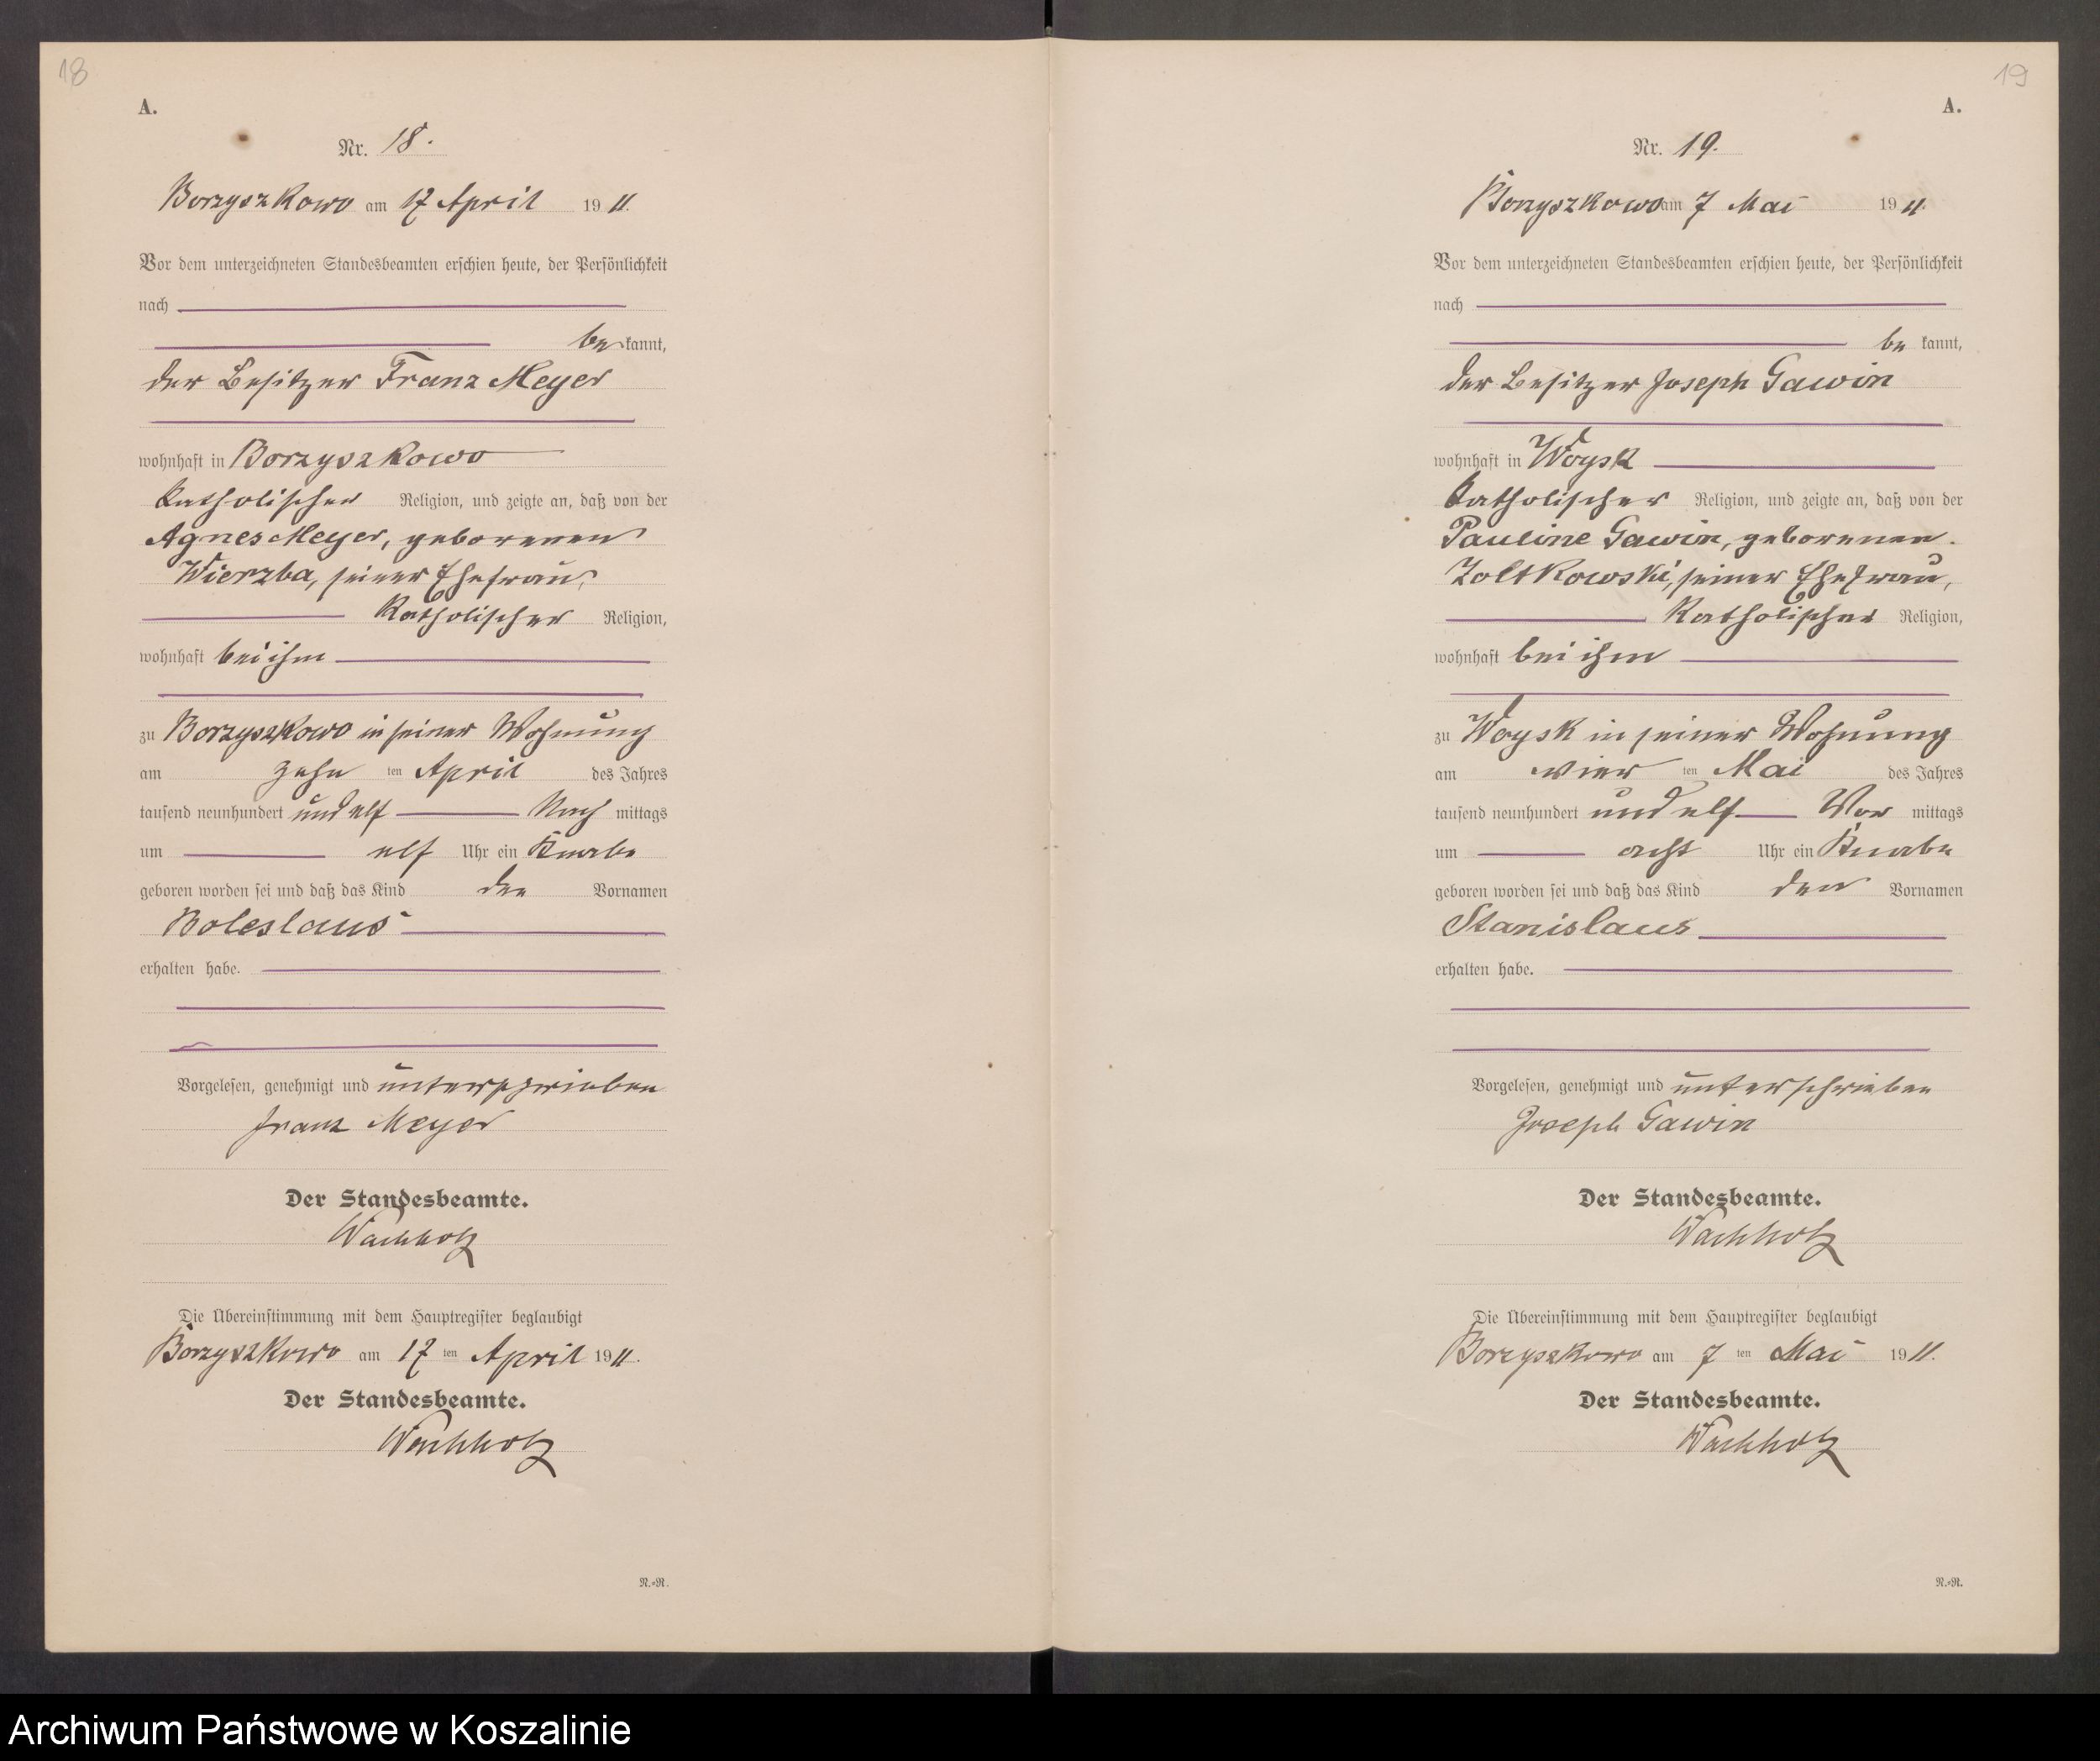 18
A.
Nr. 18.
Borzyszkowo am 17 April 1911.
Vor dem unterzeichneten Standesbeamten erschien heute, der Persönlichkeit
nach
bekannt,
der Besitzer Franz Meyer
wohnhaft in Borzyszkowo
Katholischer Religion, und zeigte an, daß von der
Agnes Meyer, geborenen
Wierzba, seiner Ehefrau,
Katholischer Religion,
wohnhaft bei ihm
zu Borzyszkowo in seiner Wohnung
am zehn ten April des Jahres
tausend neunhundert und elf Nach mittags
um elf Uhr ein Knabe
geboren worden sei und daß das Kind den Vornamen
Boleslaus
erhalten habe.
Vorgelesen, genehmigt und unterschrieben
Franz Meyer
Der Standesbeamte.
Wachholz
Die Übereinstimmung mit dem Hauptregister beglaubigt
Borzyszkowo am 17 ten April 1911.
Der Standesbeamte.
Wachholz
N.=N.
19
A.
Nr. 19.
Borzyszkowo am 7 Mai 1911.
Vor dem unterzeichneten Standesbeamten erschien heute, der Persönlichkeit
nach
bekannt,
der Besitzer Joseph Gawin
wohnhaft in Woysk
Katholischer Religion, und zeigte an, daß von der
Pauline Gawin, geborenen
Zoltkowski, seiner Ehefrau,
Katholischer Religion,
wohnhaft bei ihm
zu Woysk in seiner Wohnung
am vier ten Mai des Jahres
tausend neunhundert und elf Vor mittags
um acht Uhr ein Knabe
geboren worden sei und daß das Kind den Vornamen
Stanislaus
erhalten habe.
Vorgelesen, genehmigt und unterschrieben
Joseph Gawin
Der Standesbeamte.
Wachholz
Die Übereinstimmung mit dem Hauptregister beglaubigt
Borzyszkowo am 7 ten Mai 1911.
Der Standesbeamte.
Wachholz
N.=N.
Archiwum Państwowe w Koszalinie